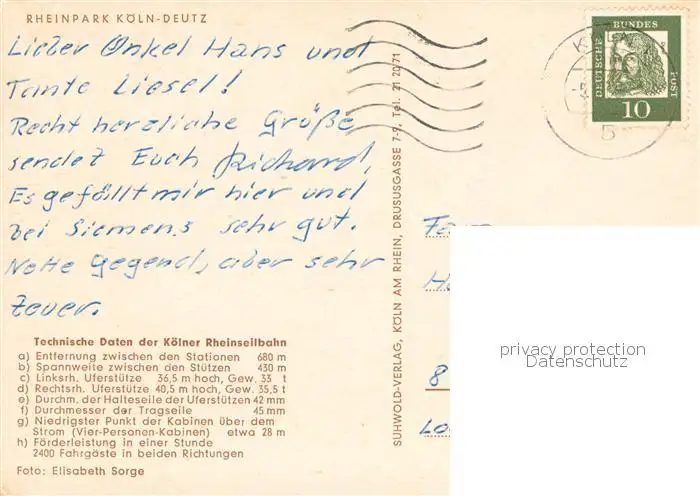 RHEINPARK KÖLN-DEUTZ
Lieber Onkel Hans und
Tante Liesel!
Recht herzliche Grüße
sendet Euch Richard.
Es gefällt mir hier und
bei Siemens sehr gut.
Nette Gegend, aber sehr
teuer.
Technische Daten der Kölner Rheinseilbahn
a) Entfernung zwischen den Stationen 680 m
b) Spannweite zwischen den Stützen 430 m
c) Linksrh. Uferstütze 36,5 m hoch, Gew. 33 t
d) Rechtsrh. Uferstütze 40,5 m hoch, Gew. 35,5 t
e) Durchm. der Halteseile der Uferstützen 42 mm
f) Durchmesser der Tragseile 45 mm
g) Niedrigster Punkt der Kabinen über dem
Strom (Vier-Personen-Kabinen) etwa 28 m
h) Förderleistung in einer Stunde
2400 Fahrgäste in beiden Richtungen
Foto: Elisabeth Sorge
SUHWOLD-VERLAG, KÖLN AM RHEIN, DRUSUSGASSE 7-9, Tel. 21 20/71
DEUTSCHE BUNDES POST
10
5
8
privacy protection
Oldthing.de